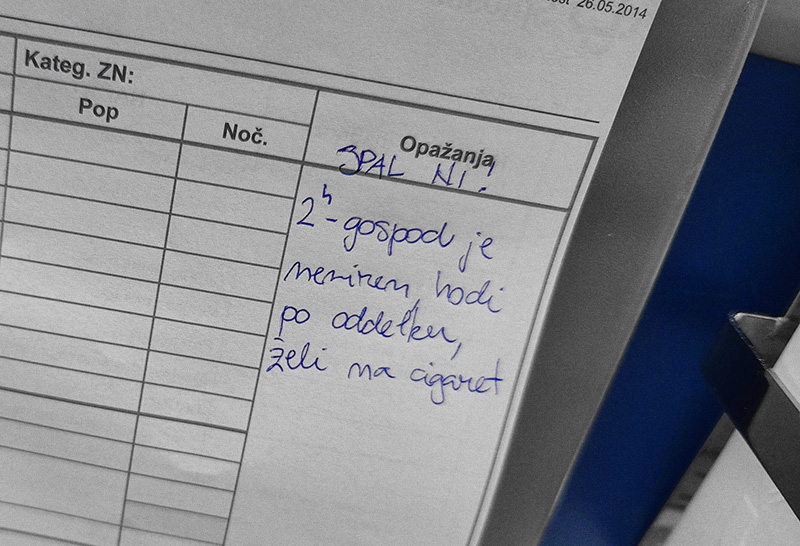 26.05.2014
Kateg. ZN:
Pop
Noč.
Opažanja
SPAL NI!
2h - gospod je
nemiren, hodi
po oddelku,
želi na cigaret